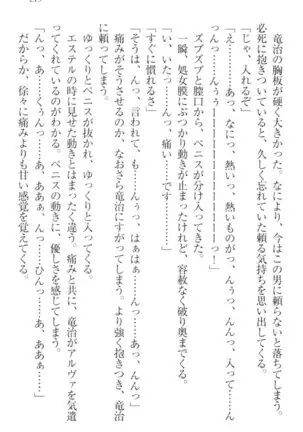 竜治の胸板が硬く大きかった。なにより、今はこの男に頼らないと落ちてしまう。
必死に抱きついていると、久しく忘れていた頼る気持ちを思い出してくる。
「じゃ、入れるぞ」
「え……あっ、なにっ、熱いっ、熱いものがっ……んぅっ、んんっ、入って……っ、
あっ、ーーーーーーーーーーっ！」
ズブズブアと膣口から、ペニスが分け入ってきた。
一瞬、処女膜にぶつかり動きが止まったけれど、容赦なく破り奥まで。
「い、いたっ……んっ、痛い……です……」
「すぐに慣れるさ」
「そ、そんな……んっ、言われて、も……んぅっ、はぁはぁ……んっ、あっ、んんっ」
痛みがそうさせるのか、なおさら竜治にすがってしまう。より強く抱きつき、竜治
に頼ってしまう。
ゆっくりとペニスが抜かれ、ゆっくりと入ってくる。
エステルの時に見せた動きとはまったく違う。痛みと共に、竜治がアルヴァを気遣
ってくれているのがわかる。ペニスの動きに、優しさを感じてしまう。
「んっ、あっ……くぅんっ……あ、んっ……ひんっ……あ、ああぁ……」
だからか、徐々に痛みよりも甘い感覚を覚えてくる。